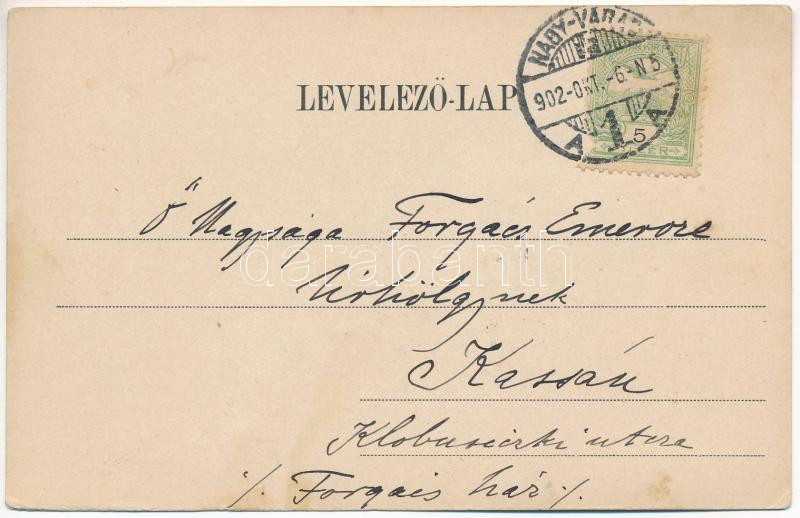 NAGY-VÁRAD
902-OKT.-6.-N 5
A 1 A
5
LEVELEZŐ-LAP
Ő Nagysága Forgács Emerore
darabanth
Úrhölgynek
Kassán
utcza
./. Forgács ház ./.